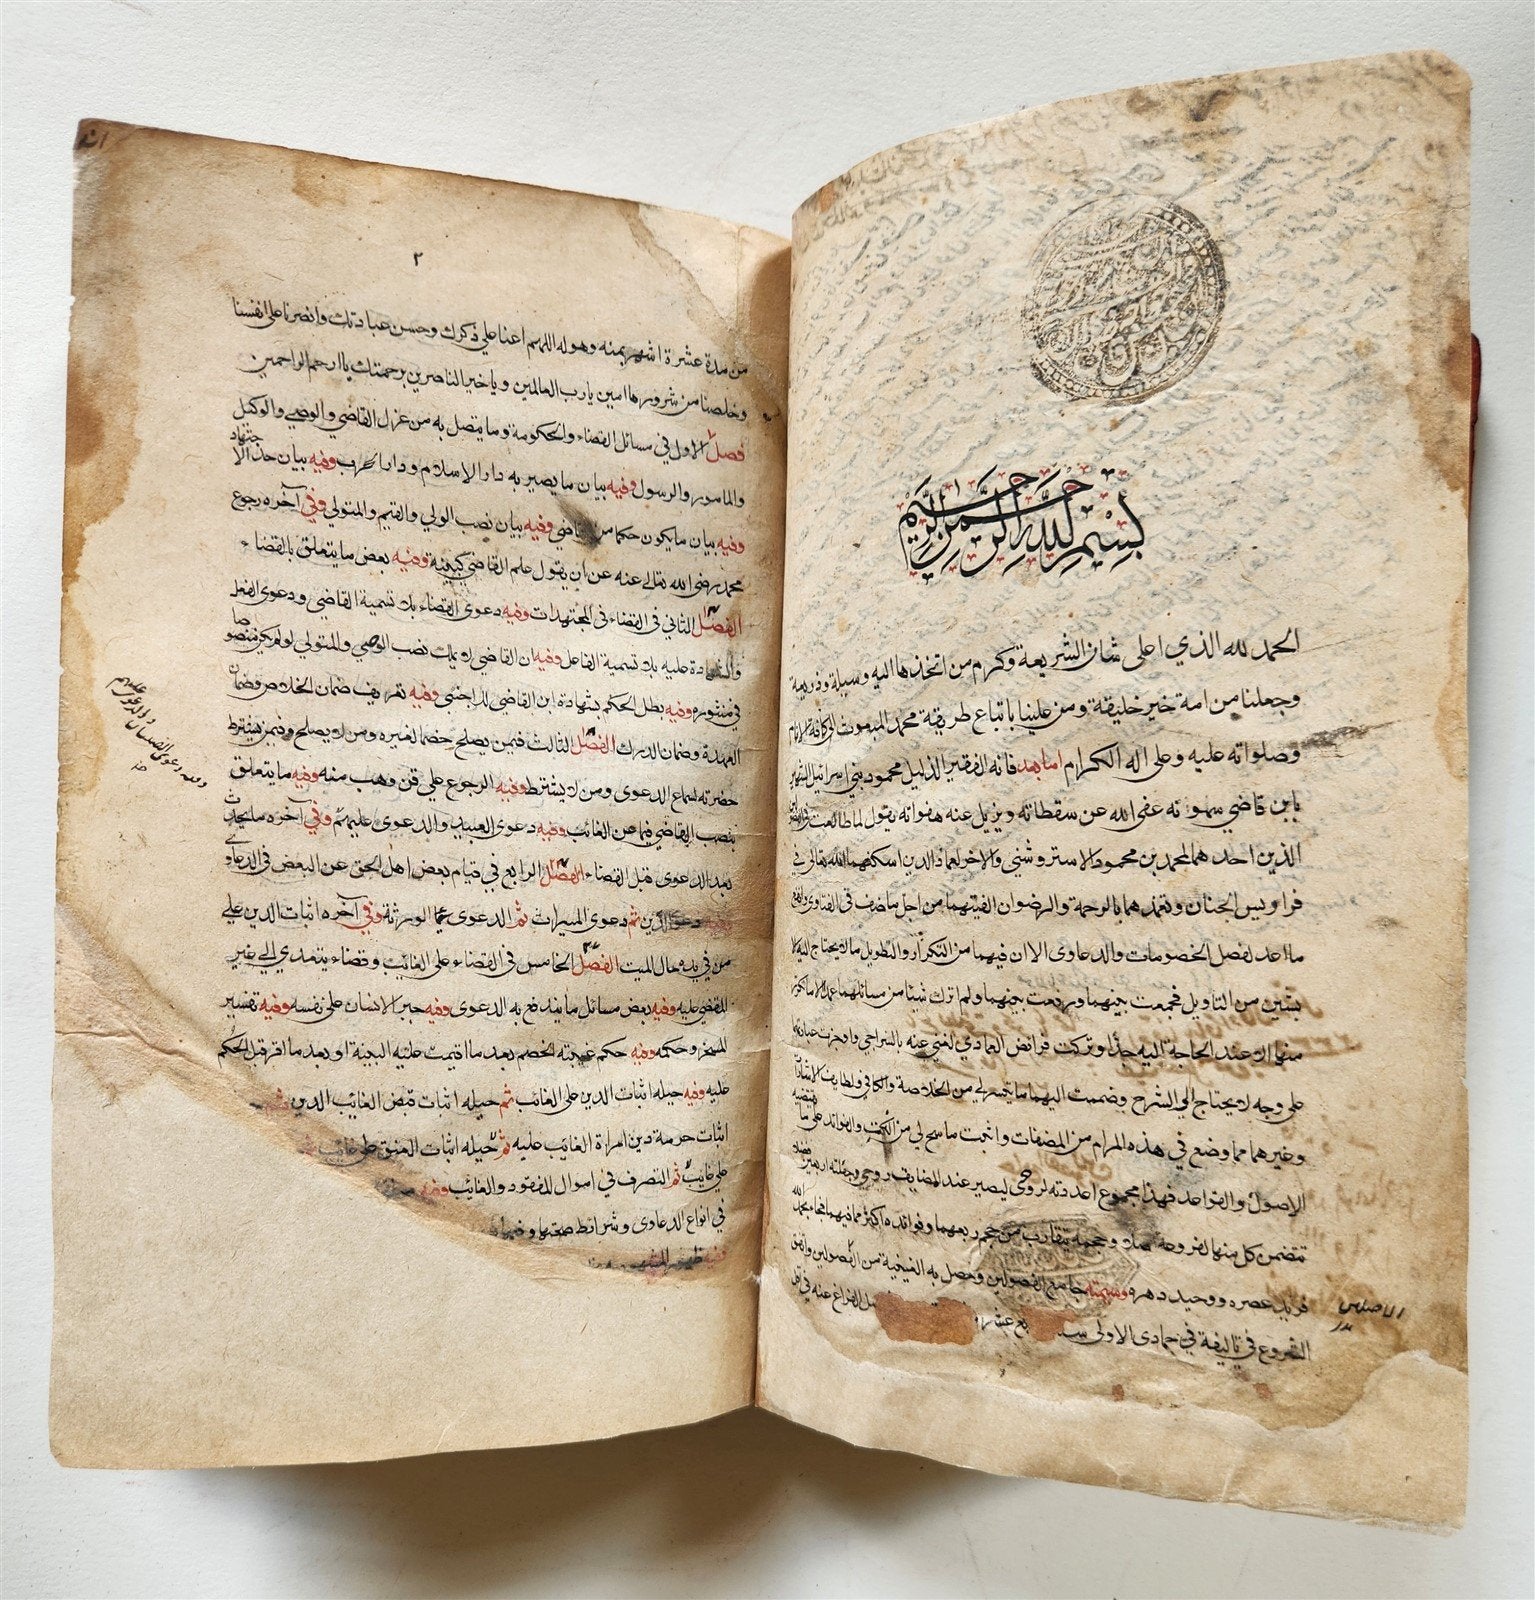 بسم الله الرحمن الرحيم
الحمد لله الذي اعلى شان الشريعة وكرم من اتخذها اليه وسيلة وذريعة
وجعلنا من امة خير خليقة ومن علينا باتباع طريقة محمد المبعوث الى كافة الانام
وصلواته عليه وعلى اله الكرام اما بعد فانه الفقير الذليل محمود بن اسرائيل الشهير
بابن قاضي سمونه عفى الله عن سقطاته ويزيل عنه هفواته يقول لما طالعت
الذين احدهما لمحمد بن محمود الاستروشني والاخر لعماد الدين اسكنهما الله تعالى في
فراديس الجنان وتغمدهما بالرحمة والرضوان الفيتهما من اجل ما صنف في الفتاوى وانفع
ما اعد لفصل الخصومات والدعاوى الا ان فيهما من التكرار والتطويل ما لا يحتاج اليه
من التاويل فجمعت بينهما ورفعت بينهما ولم اترك شيئا من مسائلهما عمدا الا ما تكرر
منها الا عند الحاجة اليه جدا وتركت فرائض العمادي لغني عنه بالسراجي واوجزت عبارة
على وجه لا يحتاج الي الشرح وضممت اليهما ما تيسر لي من الخلاصة والكافي ولطايف الاشارات
وغيرهما مما وضع في هذه المرام من المصنفات واثبت ما سنح لي من النكت والفوائد على ما تقتضيه
الاصول والقواعد فهذا مجموع اعددته لروحي ليصير عند المضايق روحي وجعلته اربعين فصلا
تتضمن كل منها لفروعه اصلا وحجمه يتقارب من حجم ربعهما وفوائده اكثر مما فيهما فجاء بحمد الله
فريد عصره ووحيد دهره وسميته جامع الفصولين وحصل به الغنية من الفصولين واتفق
الشروع في تاليفه في جمادى الاولى الفراغ عنه في
٢
من مدة عشرة اشهر بمنه وحوله اللهم اعنا على ذكرك وحسن عبادتك وانصرنا على انفسنا
وخلصنا من شرورها امين يا رب العالمين ويا خير الناصرين برحمتك يا ارحم الراحمين
فصل الاول في مسائل القضاء والحكومة وما يتصل به من عزل القاضي والوصي والوكيل
والمامور والرسول وفيه بيان ما يصير به دار الاسلام ودار الحرب وفيه بيان حد الاجتهاد
وفيه بيان ما يكون حكما من القاضي وفيه بيان نصب الولي والقيم والمتولي وفي آخره رجوع
محمد رضى الله تعالى عنه عن ان يقول علم القاضي كبينة وفيه بعض ما يتعلق بالقضاء
الفصل الثاني في القضاء في المجتهدات وفيه دعوى القضاء بلا تسمية القاضي ودعوى الفعل
والشهادة عليه بلا تسمية الفاعل وفيه ان القاضي لا يملك نصب الوصي والمتولي لو لم يكن منصوصا
في منشوره وفيه بطل الحكم بشهادة ابن القاضي للاجنبي وفيه تعريف ضمان الخلاص وضمان
العهدة وضمان الدرك الفصل الثالث فيمن يصلح خصما لغيره ومن لا يصلح وفيمن يشترط
حضرته لسماع الدعوى ومن لا يشترط وفيه الرجوع على قن وهب منه وفيه ما يتعلق
بنصب القاضي فيما عن الغائب وفيه دعوى العبيد والدعوى عليهم وفي آخره ما يحدث
بعد الدعوى قبل القضاء الفصل الرابع في قيام بعض اهل الحق عن البعض في الدعاوي
وفيه دعوى الدين ثم دعوى الميراث ثم الدعوى على الورثة وفي آخره اثبات الدين على
من في يده مال الميت الفصل الخامس في القضاء على الغائب وقضاء يتعدي الى غير
المقضي عليه وفيه بعض مسائل ما يندفع به الدعوى وفيه حجر الانسان على نفسه وفيه تفسير
المسخر وحكمه وفيه حكم غيبة الخصم بعد ما اقيمت عليه البينة او بعد ما اقر قبل الحكم
عليه وفيه حيلة اثبات الدين على الغائب ثم حيلة اثبات قبض الغائب الدين
اثبات حرمة دين امراة الغائب عليه ثم حيلة اثبات العتق على غايب
على غايب ثم التصرف في اموال المفقود والغائب وفيه
في انواع الدعاوى وشرائط صحتها